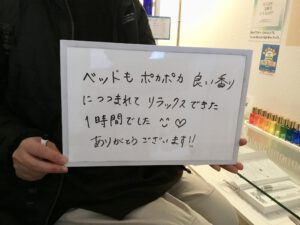 ベッドも ポカポカ 良い香り
につつまれて リラックスできた
1時間でした ☺ ♡
ありがとうございます!!